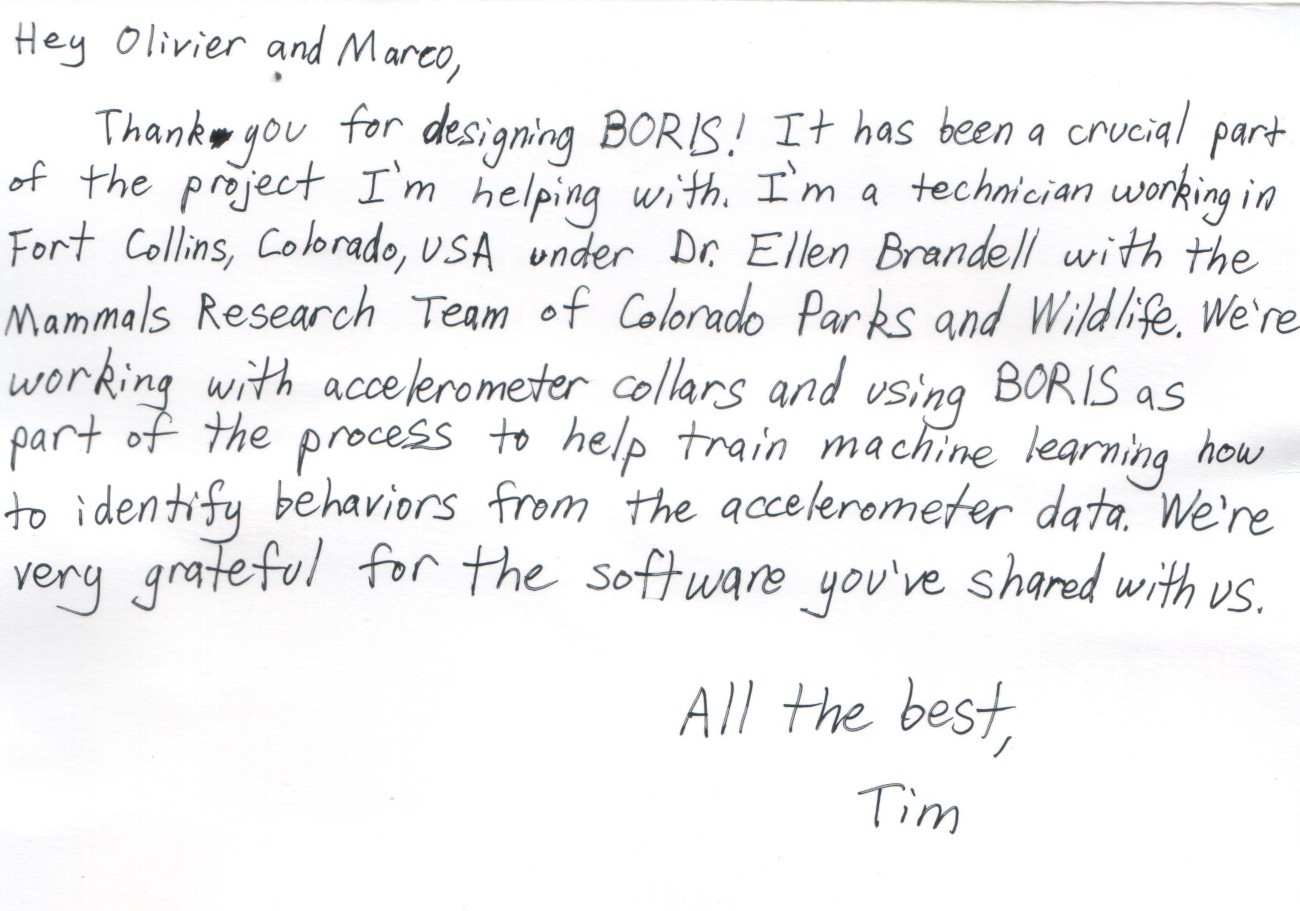 Hey Olivier and Marco,
Thank you for designing BORIS! It has been a crucial part
of the project I'm helping with. I'm a technician working in
Fort Collins, Colorado, USA under Dr. Ellen Brandell with the
Mammals Research Team of Colorado Parks and Wildlife. We're
working with accelerometer collars and using BORIS as
part of the process to help train machine learning how
to identify behaviors from the accelerometer data. We're
very grateful for the software you've shared with us.
All the best,
Tim